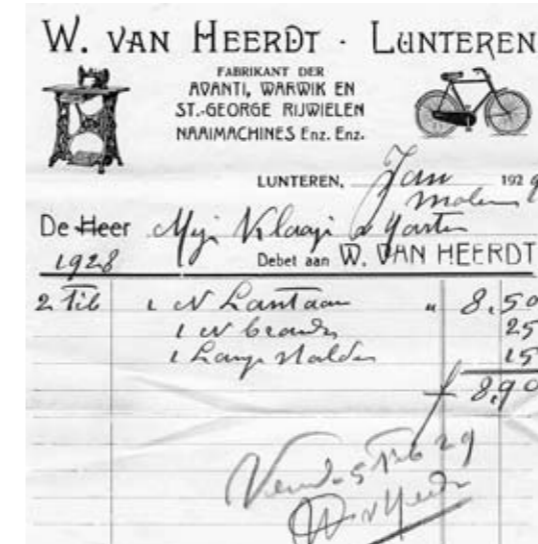 W. VAN HEERDT · LUNTEREN
FABRIKANT DER
AVANTI, WARWIK EN
ST.-GEORGE RIJWIELEN
NAAIMACHINES ENZ. ENZ.
LUNTEREN, Jan 1929
molen
De Heer Mej.
Debet aan W. VAN HEERDT
1928
2 Feb 1 N Lantaarn " 8,50
1 N brander 25
1 Lamp 15
f 8,90
5 Feb 29